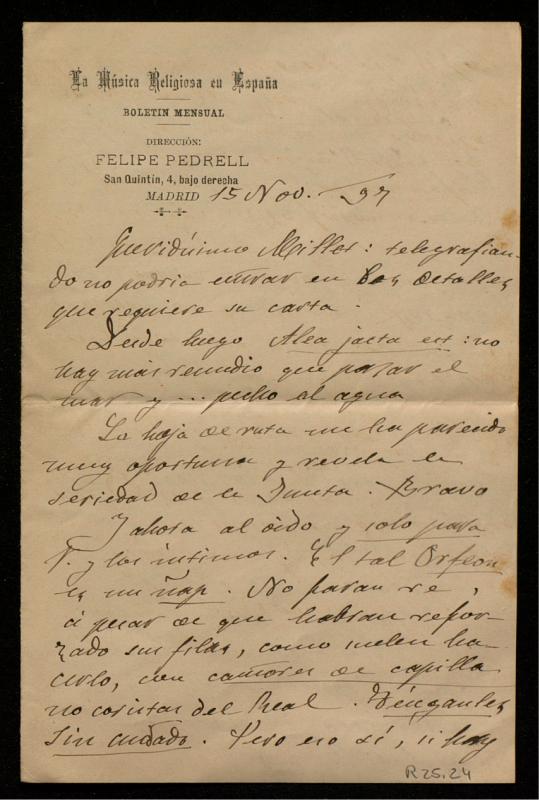 La Música Religiosa en España
BOLETIN MENSUAL
DIRECCIÓN:
FELIPE PEDRELL
San Quintín, 4, bajo derecha
MADRID 15 Nov. 97
Queridísimo Millet: telegrafian-
do no podria entrar en los detalles
que requiere su carta.
Desde luego Alea jacta est: no
hay más remedio que pasar el
mar y ... pecho al agua
La hoja de ruta me ha parecido
muy oportuna y revela la
seriedad de la Junta. Bravo
Y ahora al oido y solo para
V. y los íntimos. El tal Orfeon
es un ñap. No pasan de,
á pesar de que habran refor-
zado sus filas, como suelen ha-
cerlo, con cantores de capilla
no coristas del Real. Vénganles
sin cuidado. Pero eso sí, si hay
R25.24